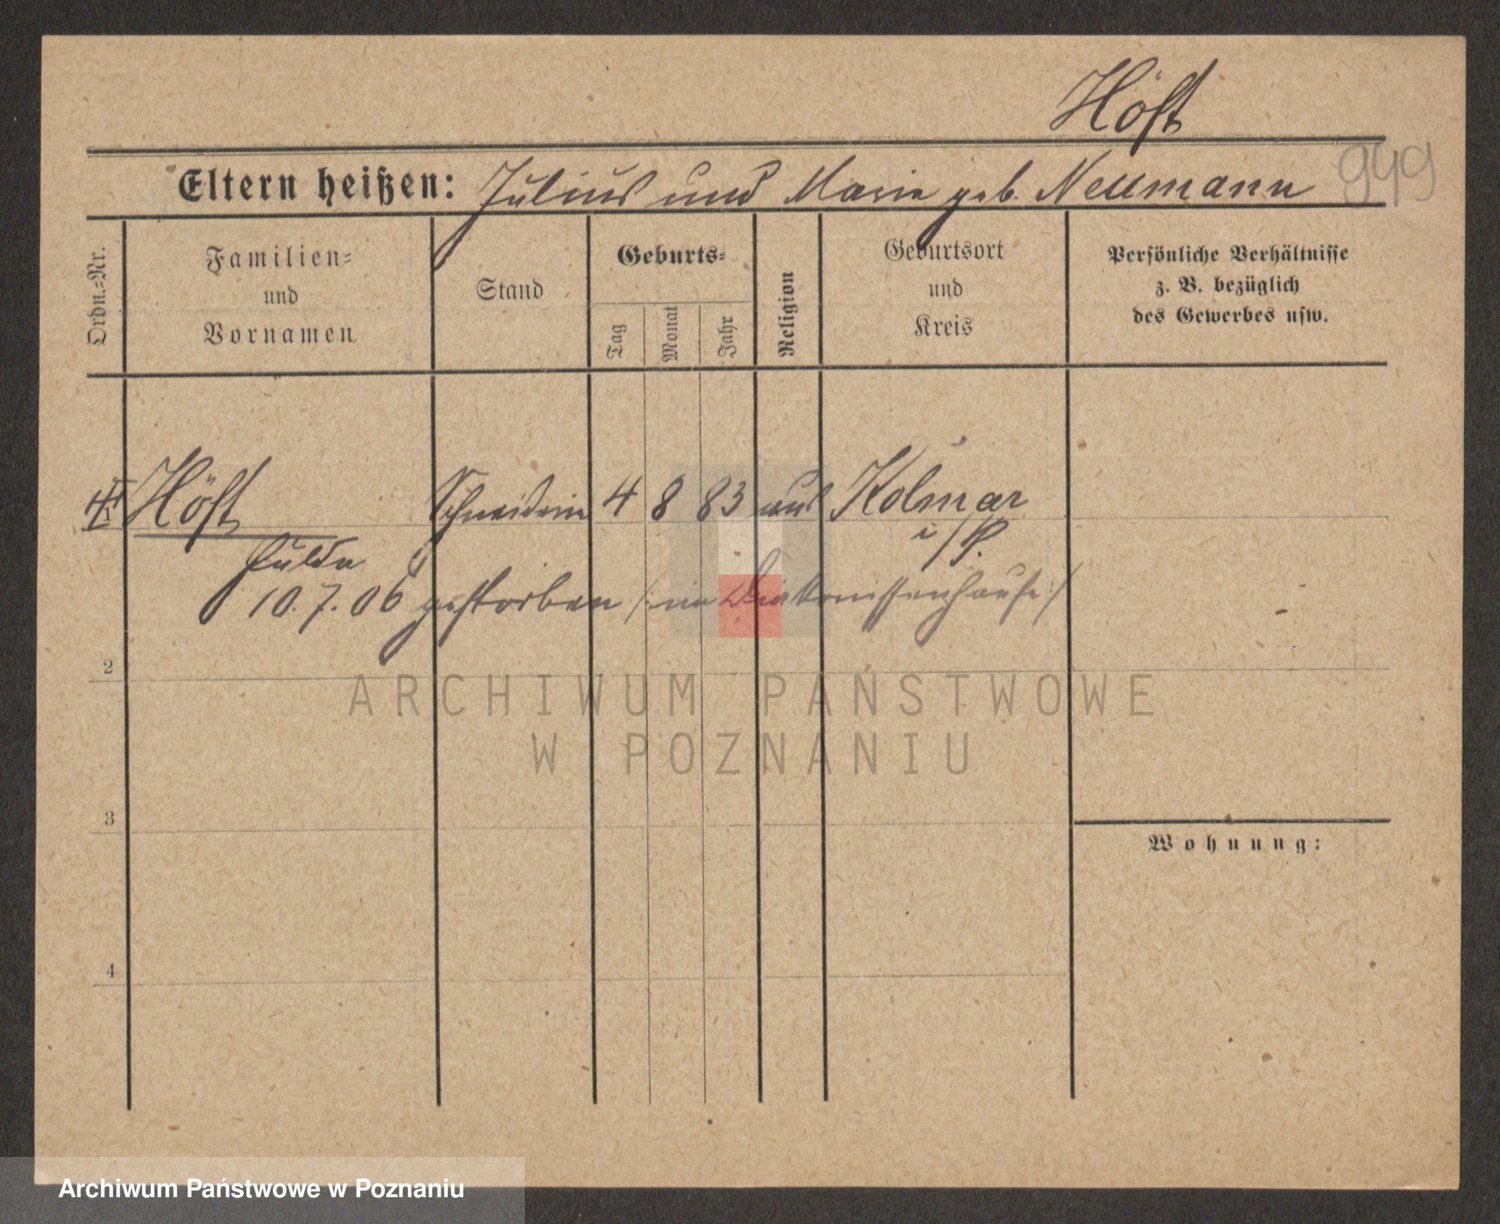 Höft
949
Eltern heißen: Julius und Marie geb. Neumann
Ordn.-Nr.
Familien-
und
Vornamen
Stand
Geburts-
Tag
Monat
Jahr
Religion
Geburtsort
und
Kreis
Persönliche Verhältnisse
z. B. bezüglich
des Gewerbes usw.
Höft Schneiderin 4 8 83 Kolmar
i/P.
Hulda
10.7.06 gestorben /: im Diakonissenhause :/
2
ARCHIWUM PAŃSTWOWE
W POZNANIU
3
Wohnung:
4
Archiwum Państwowe w Poznaniu